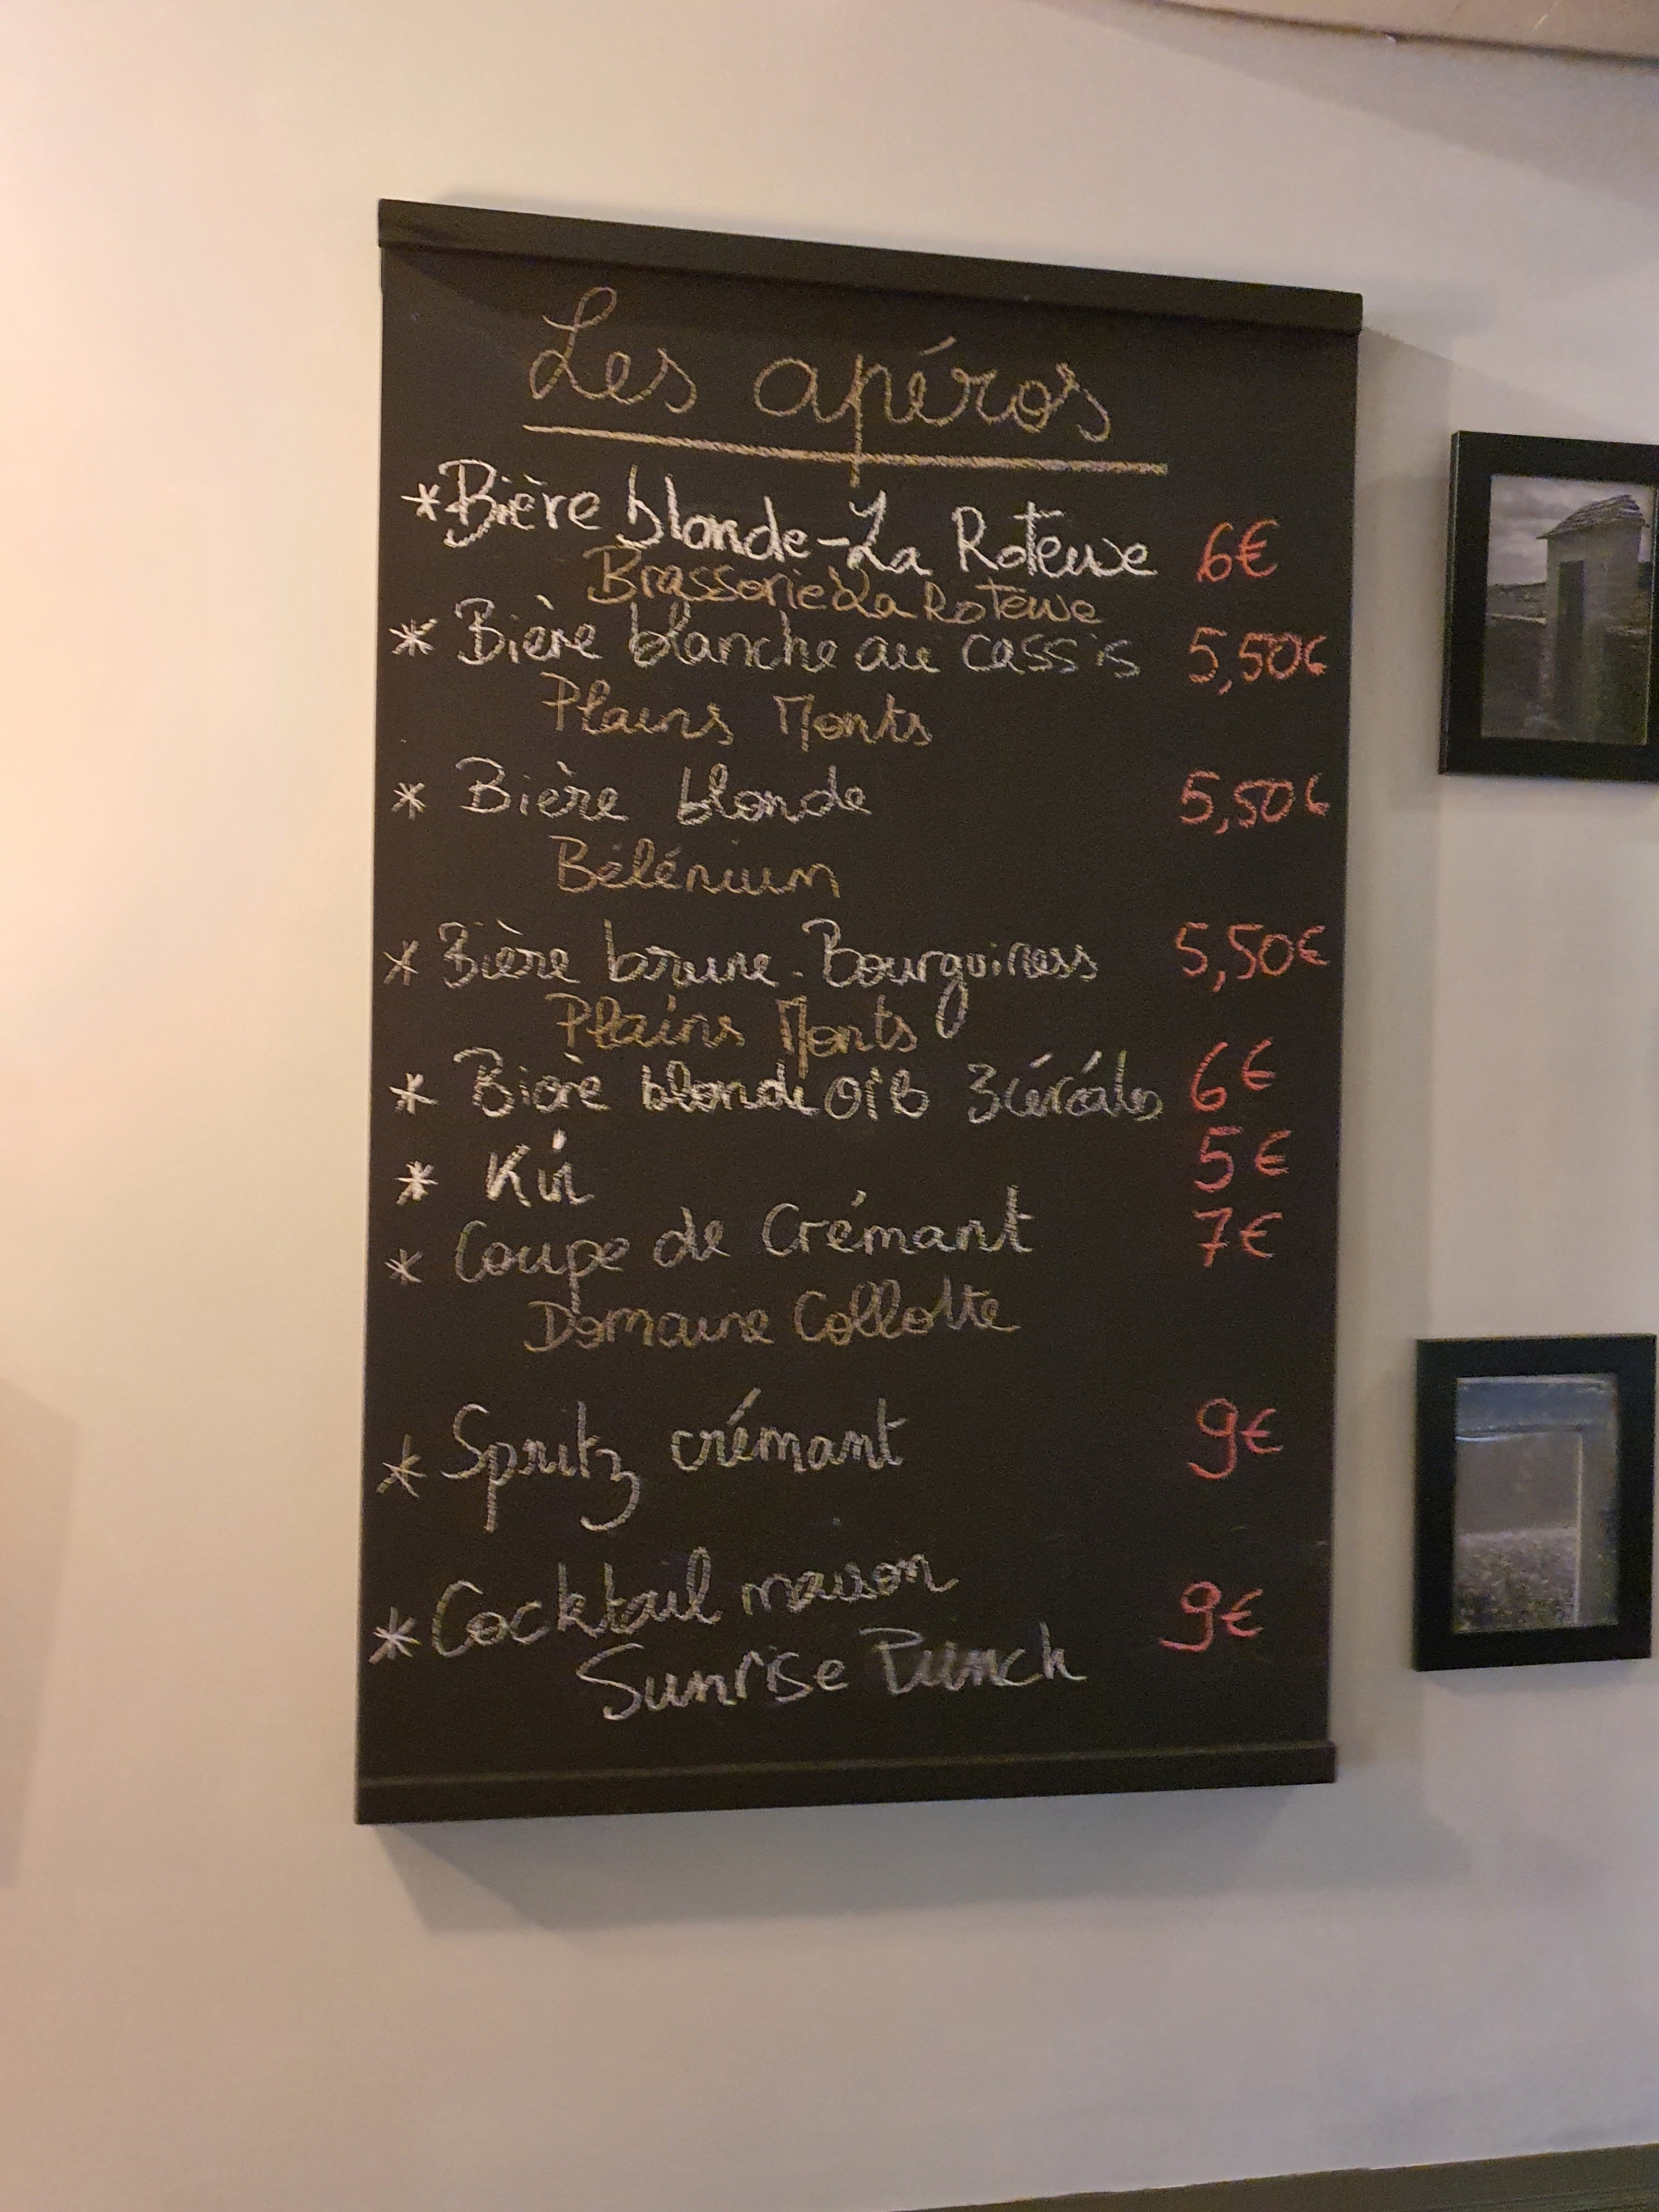 Les apéros
* Bière blonde - La Roteuse 6€
Brasserie La Roteuse
* Bière blanche au cassis 5,50€
Plains Monts
* Bière blonde 5,50€
Bélénium
* Bière brune - Bourguiness 5,50€
Plains Monts
* Bière blonde 3 céréales 6€
* Kir 5€
* Coupe de Crémant 7€
Domaine Collotte
* Spritz crémant 9€
* Cocktail maison 9€
Sunrise Punch